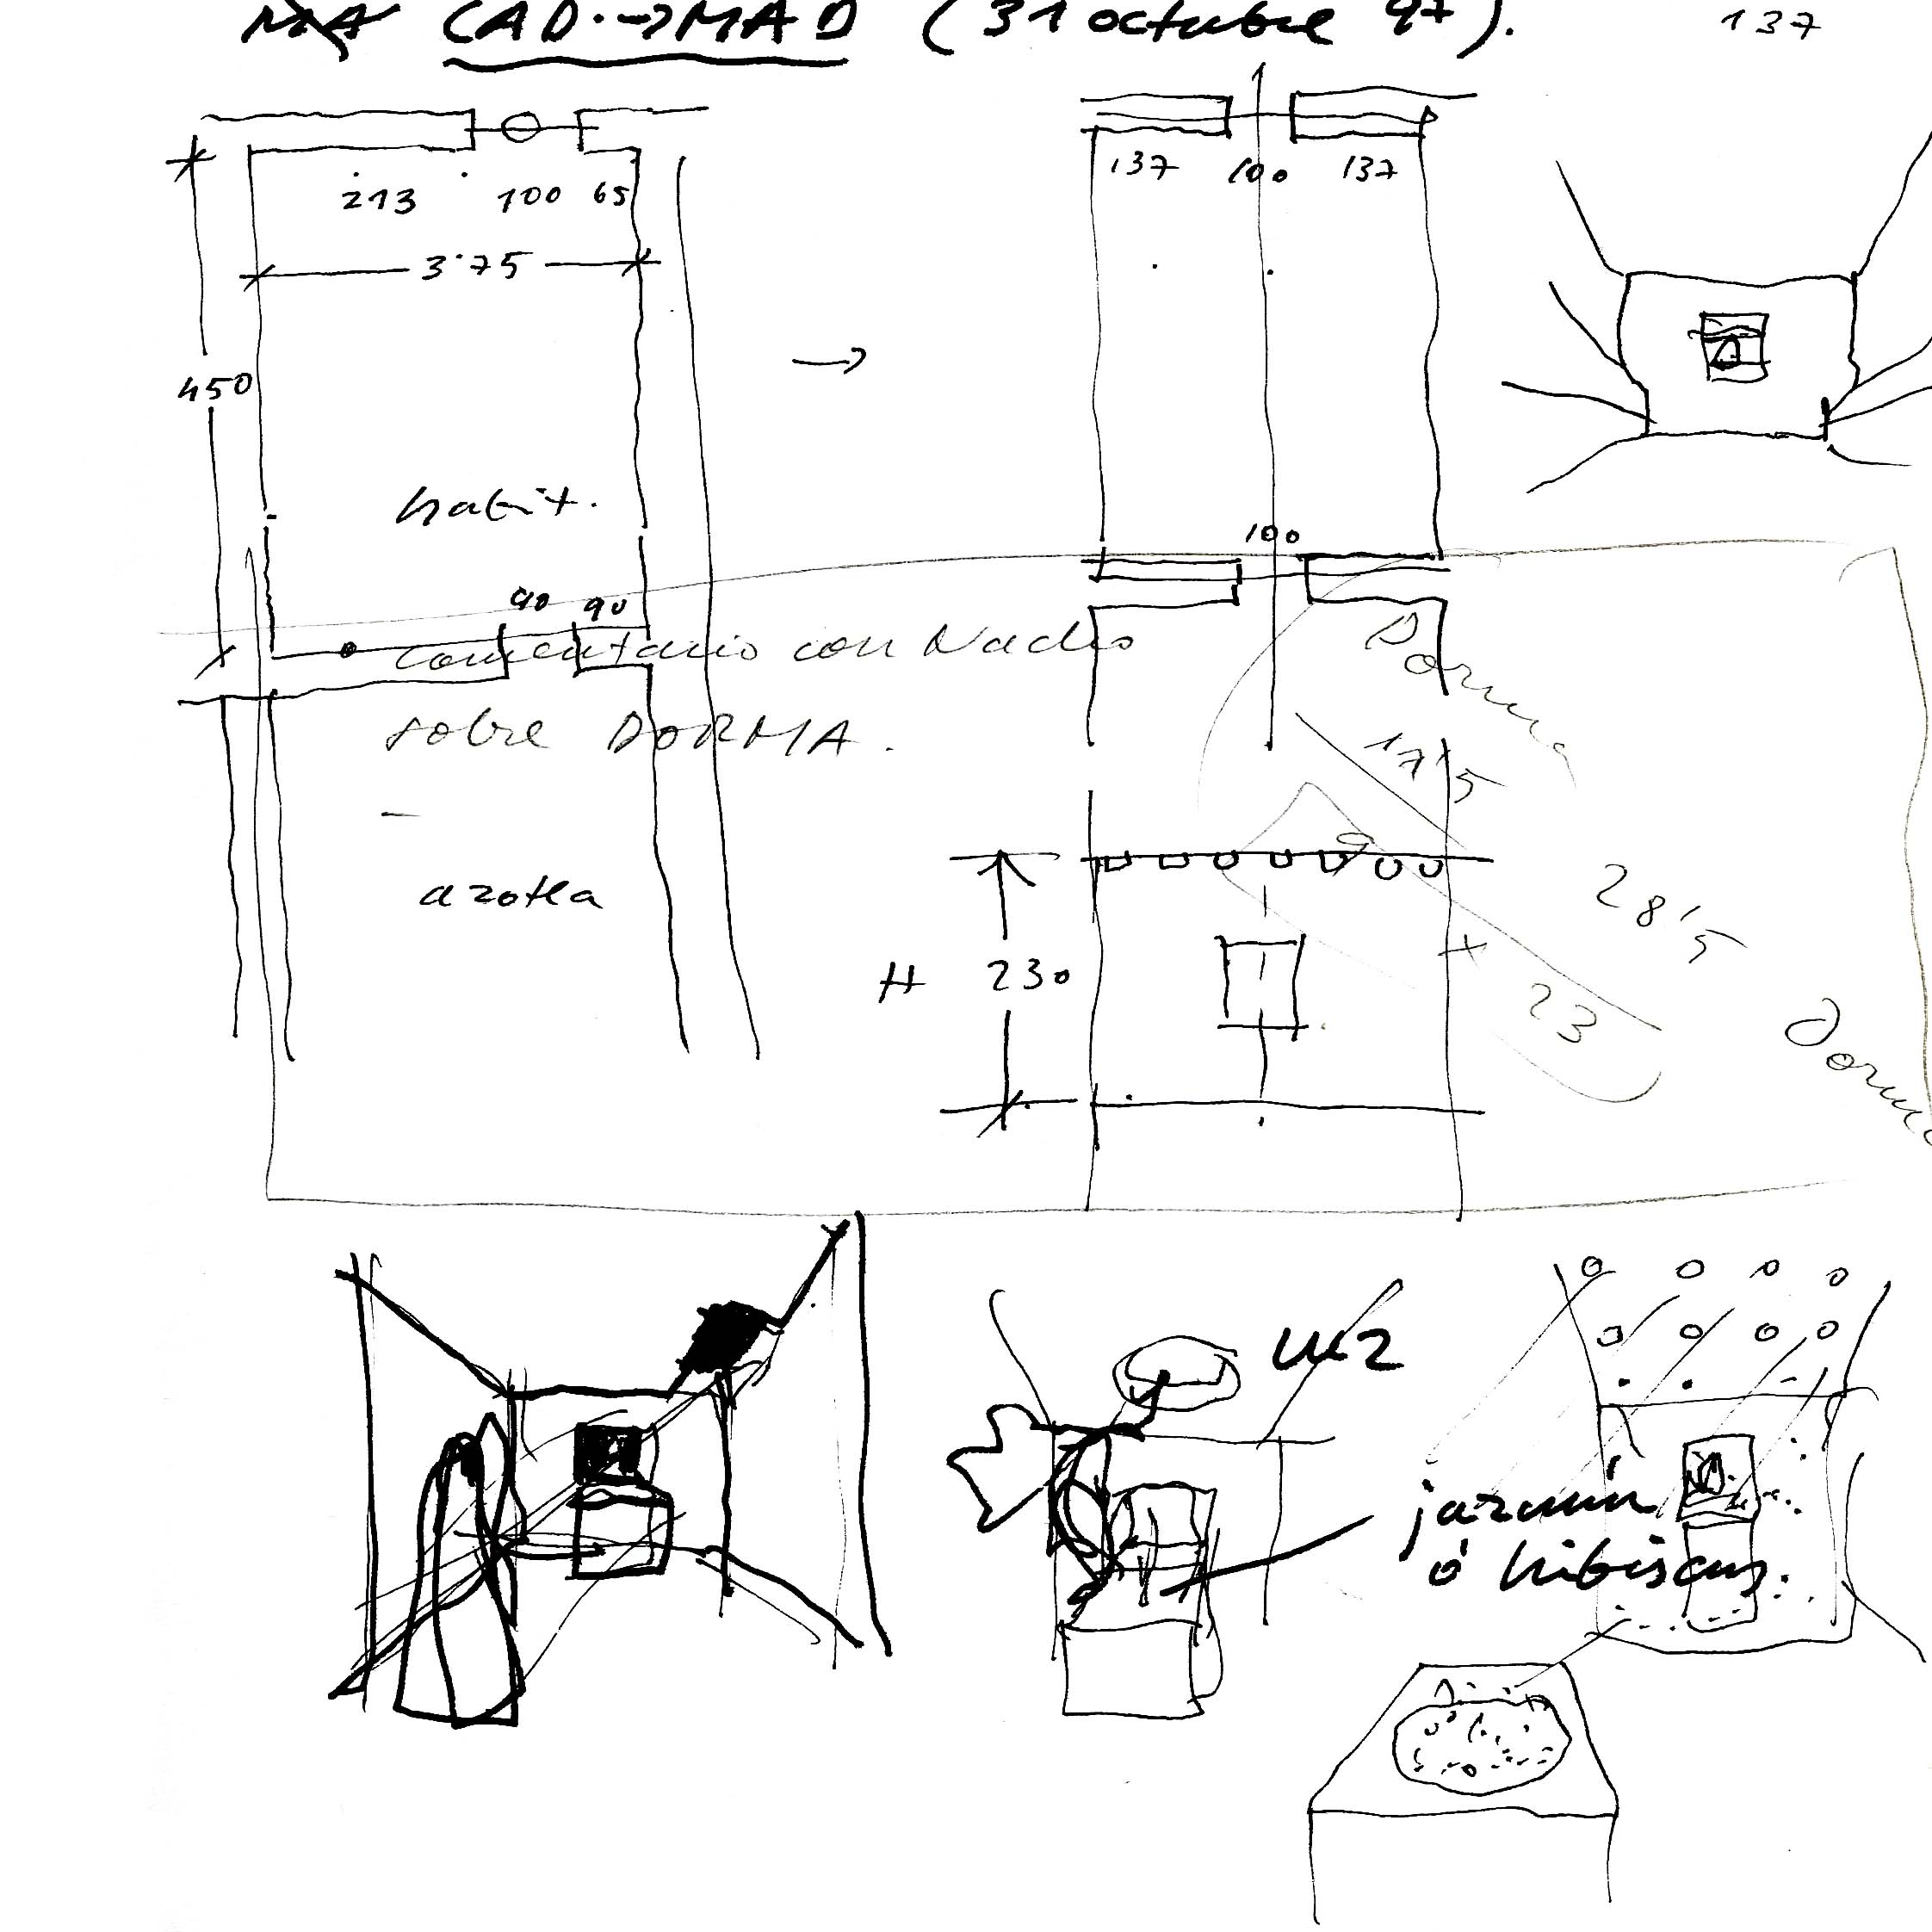 CAD.→MAD (31 octubre 97).
137
213 100 65
3'75
450
habit.
90 90
azotea
137 100 137
100
comentario con Nacho
sobre DORMA.
Dorma
17'5
28'5
x 23
Dorma
H 230
luz
jazmín
ó hibiscus.